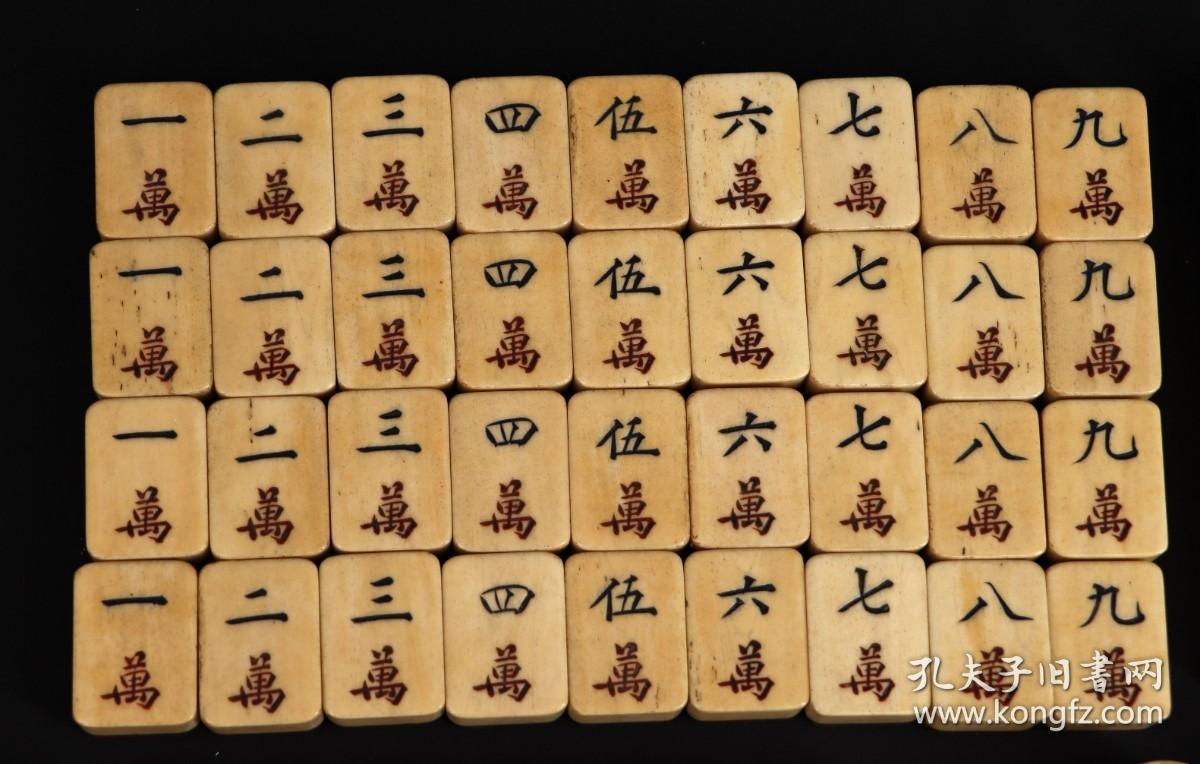 一 二 三 四 伍 六 七 八 九
萬 萬 萬 萬 萬 萬 萬 萬 萬
一 二 三 四 伍 六 七 八 九
萬 萬 萬 萬 萬 萬 萬 萬 萬
一 二 三 四 伍 六 七 八 九
萬 萬 萬 萬 萬 萬 萬 萬 萬
一 二 三 四 伍 六 七 八 九
萬 萬 萬 萬 萬 萬 萬 萬 萬
孔夫子旧書网
www.kongfz.com